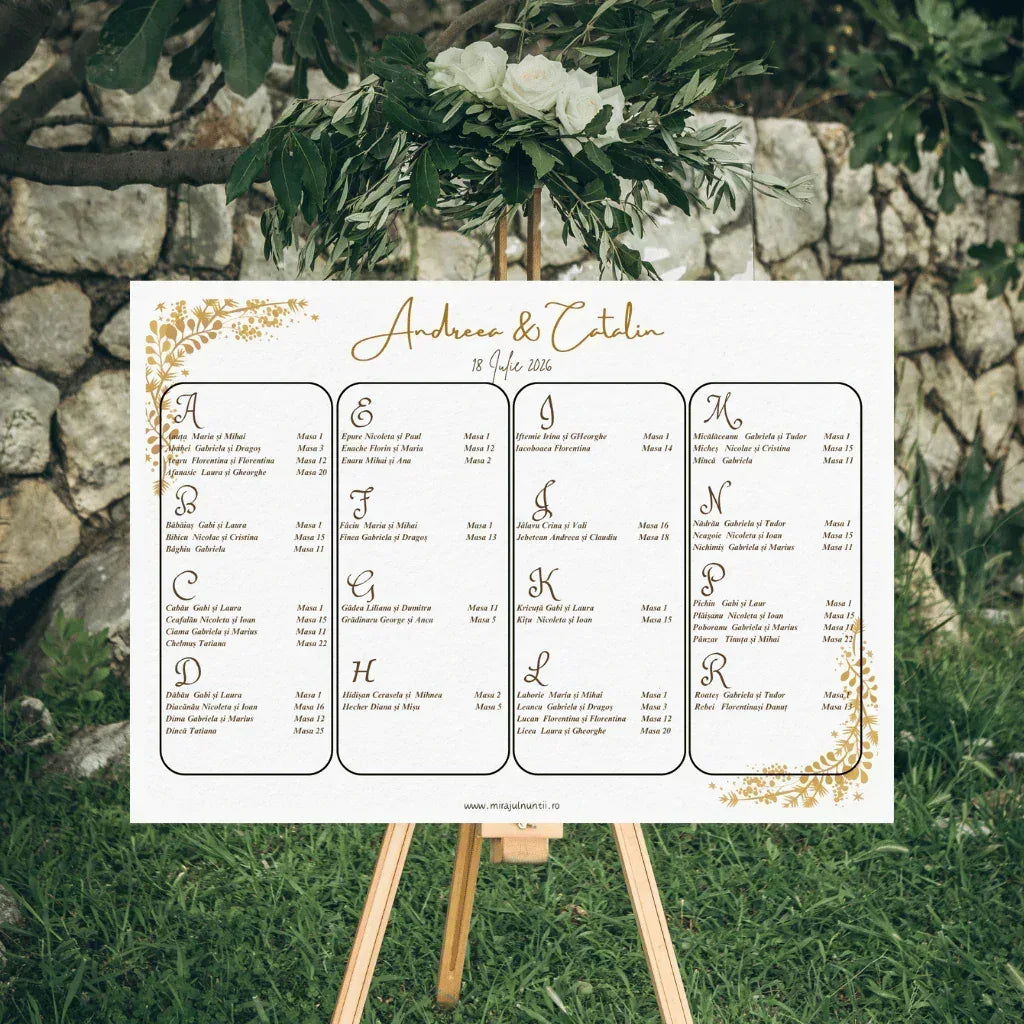 Andreea & Catalin
18 Iulie 2026
A
Maria și Mihai Masa 1
Gabriela și Dragoș Masa 3
Florentina și Florentina Masa 12
Afanasie Laura și Gheorghe Masa 20
B
Băbăiaș Gabi și Laura Masa 1
Bibicu Nicolae și Cristina Masa 15
Băghiu Gabriela Masa 11
C
Cabău Gabi și Laura Masa 1
Ceafalău Nicoleta și Ioan Masa 15
Ciama Gabriela și Marius Masa 11
Chelmuș Tatiana Masa 22
D
Dăbău Gabi și Laura Masa 1
Diacănău Nicoleta și Ioan Masa 16
Dima Gabriela și Marius Masa 12
Dincă Tatiana Masa 25
E
Epure Nicoleta și Paul Masa 1
Enache Florin și Maria Masa 12
Enaru Mihai și Ana Masa 2
F
Făciu Maria și Mihai Masa 1
Fînea Gabriela și Dragoș Masa 13
G
Gâdea Liliana și Dumitru Masa 11
Grădinaru George și Anca Masa 5
H
Hidișan Cerasela și Mihnea Masa 2
Hecher Diana și Mișu Masa 5
I
Iftemie Irina și GHeorghe Masa 1
Iacoboaea Florentina Masa 14
J
Jâlavu Crina și Vali Masa 16
Jebetean Andreea și Claudiu Masa 18
K
Kricuță Gabi și Laura Masa 1
Kițu Nicoleta și Ioan Masa 15
L
Laborie Maria și Mihai Masa 1
Leancu Gabriela și Dragoș Masa 3
Lucan Florentina și Florentina Masa 12
Licea Laura și Gheorghe Masa 20
M
Micălăceanu Gabriela și Tudor Masa 1
Micheș Nicolae și Cristina Masa 15
Mincă Gabriela Masa 11
N
Nădrău Gabriela și Tudor Masa 1
Neagoie Nicoleta și Ioan Masa 15
Nichimiș Gabriela și Marius Masa 11
P
Pichiu Gabi și Laur Masa 1
Plăișanu Nicoleta și Ioan Masa 15
Poboranu Gabriela și Marius Masa 11
Pânzar Tinuța și Mihai Masa 22
R
Roateș Gabriela și Tudor Masa 1
Rebei Florentinași Danuț Masa 13
www.mirajulnuntii.ro